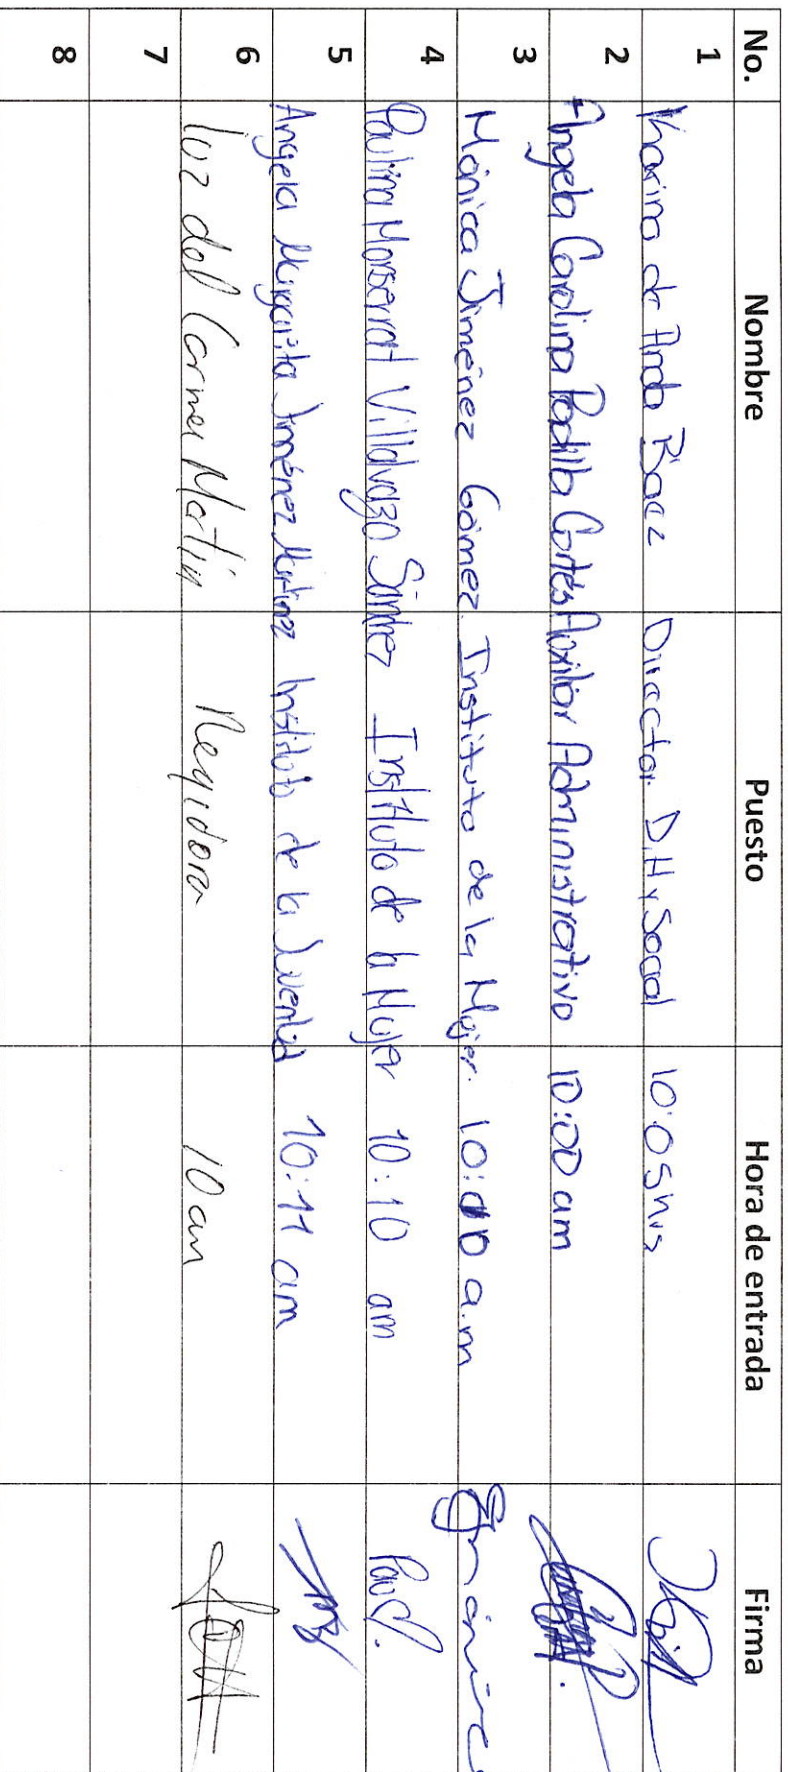 No. Nombre Puesto Hora de entrada Firma
1 Karina de Anda Baez Director D.H y Social 10:05hrs
2 Angela Carolina Padilla Cortés Auxiliar Administrativo 10:00 am
3 Mónica Jiménez Gómez. Instituto de la Mujer. 10:00 a.m
4 Paulina Monserrat Villalvazo Sánchez Instituto de la Mujer 10:10 am
5 Angela Margarita Jiménez Martínez Instituto de la Juventud 10:11 am
6 Luz del Carmen Martin Regidora 10 am
7
8